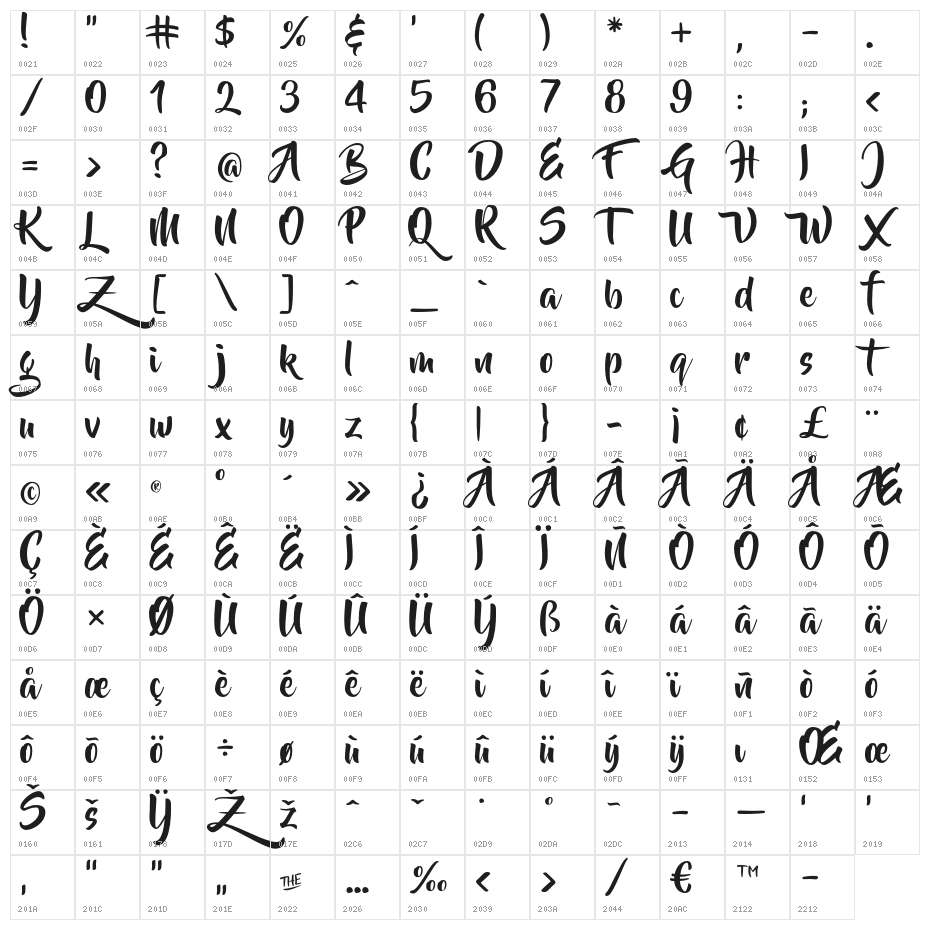 ! " # $ % & ' ( ) * + , - .
0021 0022 0023 0024 0025 0026 0027 0028 0029 002A 002B 002C 002D 002E
/ 0 1 2 3 4 5 6 7 8 9 : ; <
002F 0030 0031 0032 0033 0034 0035 0036 0037 0038 0039 003A 003B 003C
= > ? @ A B C D E F G H I J
003D 003E 003F 0040 0041 0042 0043 0044 0045 0046 0047 0048 0049 004A
K L M N O P Q R S T U V W X
004B 004C 004D 004E 004F 0050 0051 0052 0053 0054 0055 0056 0057 0058
Y Z [ \ ] ^ _ ` a b c d e f
0059 005A 005B 005C 005D 005E 005F 0060 0061 0062 0063 0064 0065 0066
g h i j k l m n o p q r s t
0067 0068 0069 006A 006B 006C 006D 006E 006F 0070 0071 0072 0073 0074
u v w x y z { | } ~ ¡ ¢ £ ¨
0075 0076 0077 0078 0079 007A 007B 007C 007D 007E 00A1 00A2 00A3 00A8
© « ® ° ´ » ¿ À Á Â Ã Ä Å Æ
00A9 00AB 00AE 00B0 00B4 00BB 00BF 00C0 00C1 00C2 00C3 00C4 00C5 00C6
Ç È É Ê Ë Ì Í Î Ï Ñ Ò Ó Ô Õ
00C7 00C8 00C9 00CA 00CB 00CC 00CD 00CE 00CF 00D1 00D2 00D3 00D4 00D5
Ö × Ø Ù Ú Û Ü Ý ß à á â ã ä
00D6 00D7 00D8 00D9 00DA 00DB 00DC 00DD 00DF 00E0 00E1 00E2 00E3 00E4
å æ ç è é ê ë ì í î ï ñ ò ó
00E5 00E6 00E7 00E8 00E9 00EA 00EB 00EC 00ED 00EE 00EF 00F1 00F2 00F3
ô õ ö ÷ ø ù ú û ü ý ÿ ı Œ œ
00F4 00F5 00F6 00F7 00F8 00F9 00FA 00FB 00FC 00FD 00FF 0131 0152 0153
Š š Ÿ Ž ž ˆ ˇ ˙ ˚ ˜ – — ‘ ’
0160 0161 0178 017D 017E 02C6 02C7 02D9 02DA 02DC 2013 2014 2018 2019
‚ “ ” „ THE … ‰ ‹ › ⁄ € ™ −
201A 201C 201D 201E 2022 2026 2030 2039 203A 2044 20AC 2122 2212